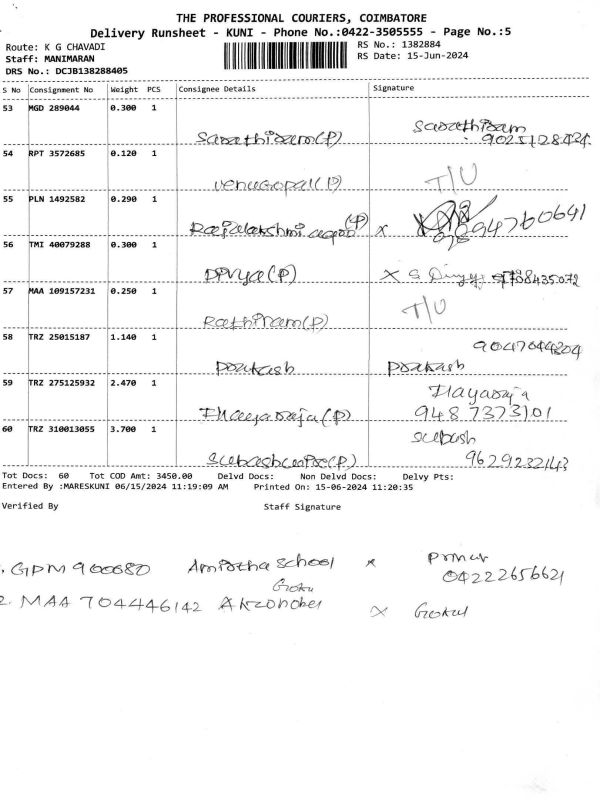 THE PROFESSIONAL COURIERS, COIMBATORE
Delivery Runsheet - KUNI - Phone No.:0422-3505555 - Page No.:5
Route: K G CHAVADI RS No.: 1382884
Staff: MANIMARAN RS Date: 15-Jun-2024
DRS No.: DCJB138288405
S No Consignment No Weight PCS Consignee Details Signature
53 MGD 289044 0.300 1
Sarathiram(P) Sarathiram
54 RPT 3572685 0.120 1
Venugopal(P) T/U
55 PLN 1492582 0.290 1
Rajalakshmi (P) x
56 TMI 40079288 0.300 1
Divya(P) x S. Divya
57 MAA 109157231 0.250 1
Rathiram(P) T/U
58 TRZ 25015187 1.140 1
Prakash Prakash
59 TRZ 275125932 2.470 1
Ilayaraja(P) Ilayaraja
9487373101
60 TRZ 310013055 3.700 1
Subash
9629232143
Tot Docs: 60 Tot COD Amt: 3450.00 Delvd Docs: Non Delvd Docs: Delvy Pts:
Entered By :MARESKUNI 06/15/2024 11:19:09 AM Printed On: 15-06-2024 11:20:35
Verified By Staff Signature
GPM 900680 School x
04222656621
2. MAA 704446142 Akzonobel x Gokul
Gokul